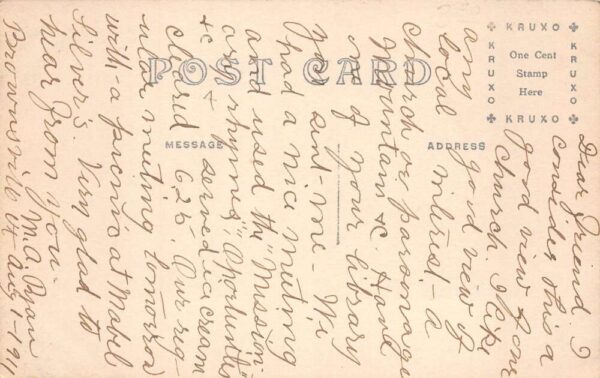 KRUXO
KRUXO
KRUXO
KRUXO
One Cent
Stamp
Here
POST CARD
MESSAGE
ADDRESS
Dear Friend I
consider this a
good view of our
church. I like
any good view of
local interest - a
church or parsonage
Mountains &c Have
one of your library
you sent-me - We
had a nice meeting
and used the "Mission-
ary rhymes", "Oportunities
&c & served ice cream
cleard 6.25. Our reg-
ular meeting tomorrow
with - a picnic at Mabel
Silver's. Very glad to
hear from you.
M.A. Ryan
Brownsville Or Aug 1-1911